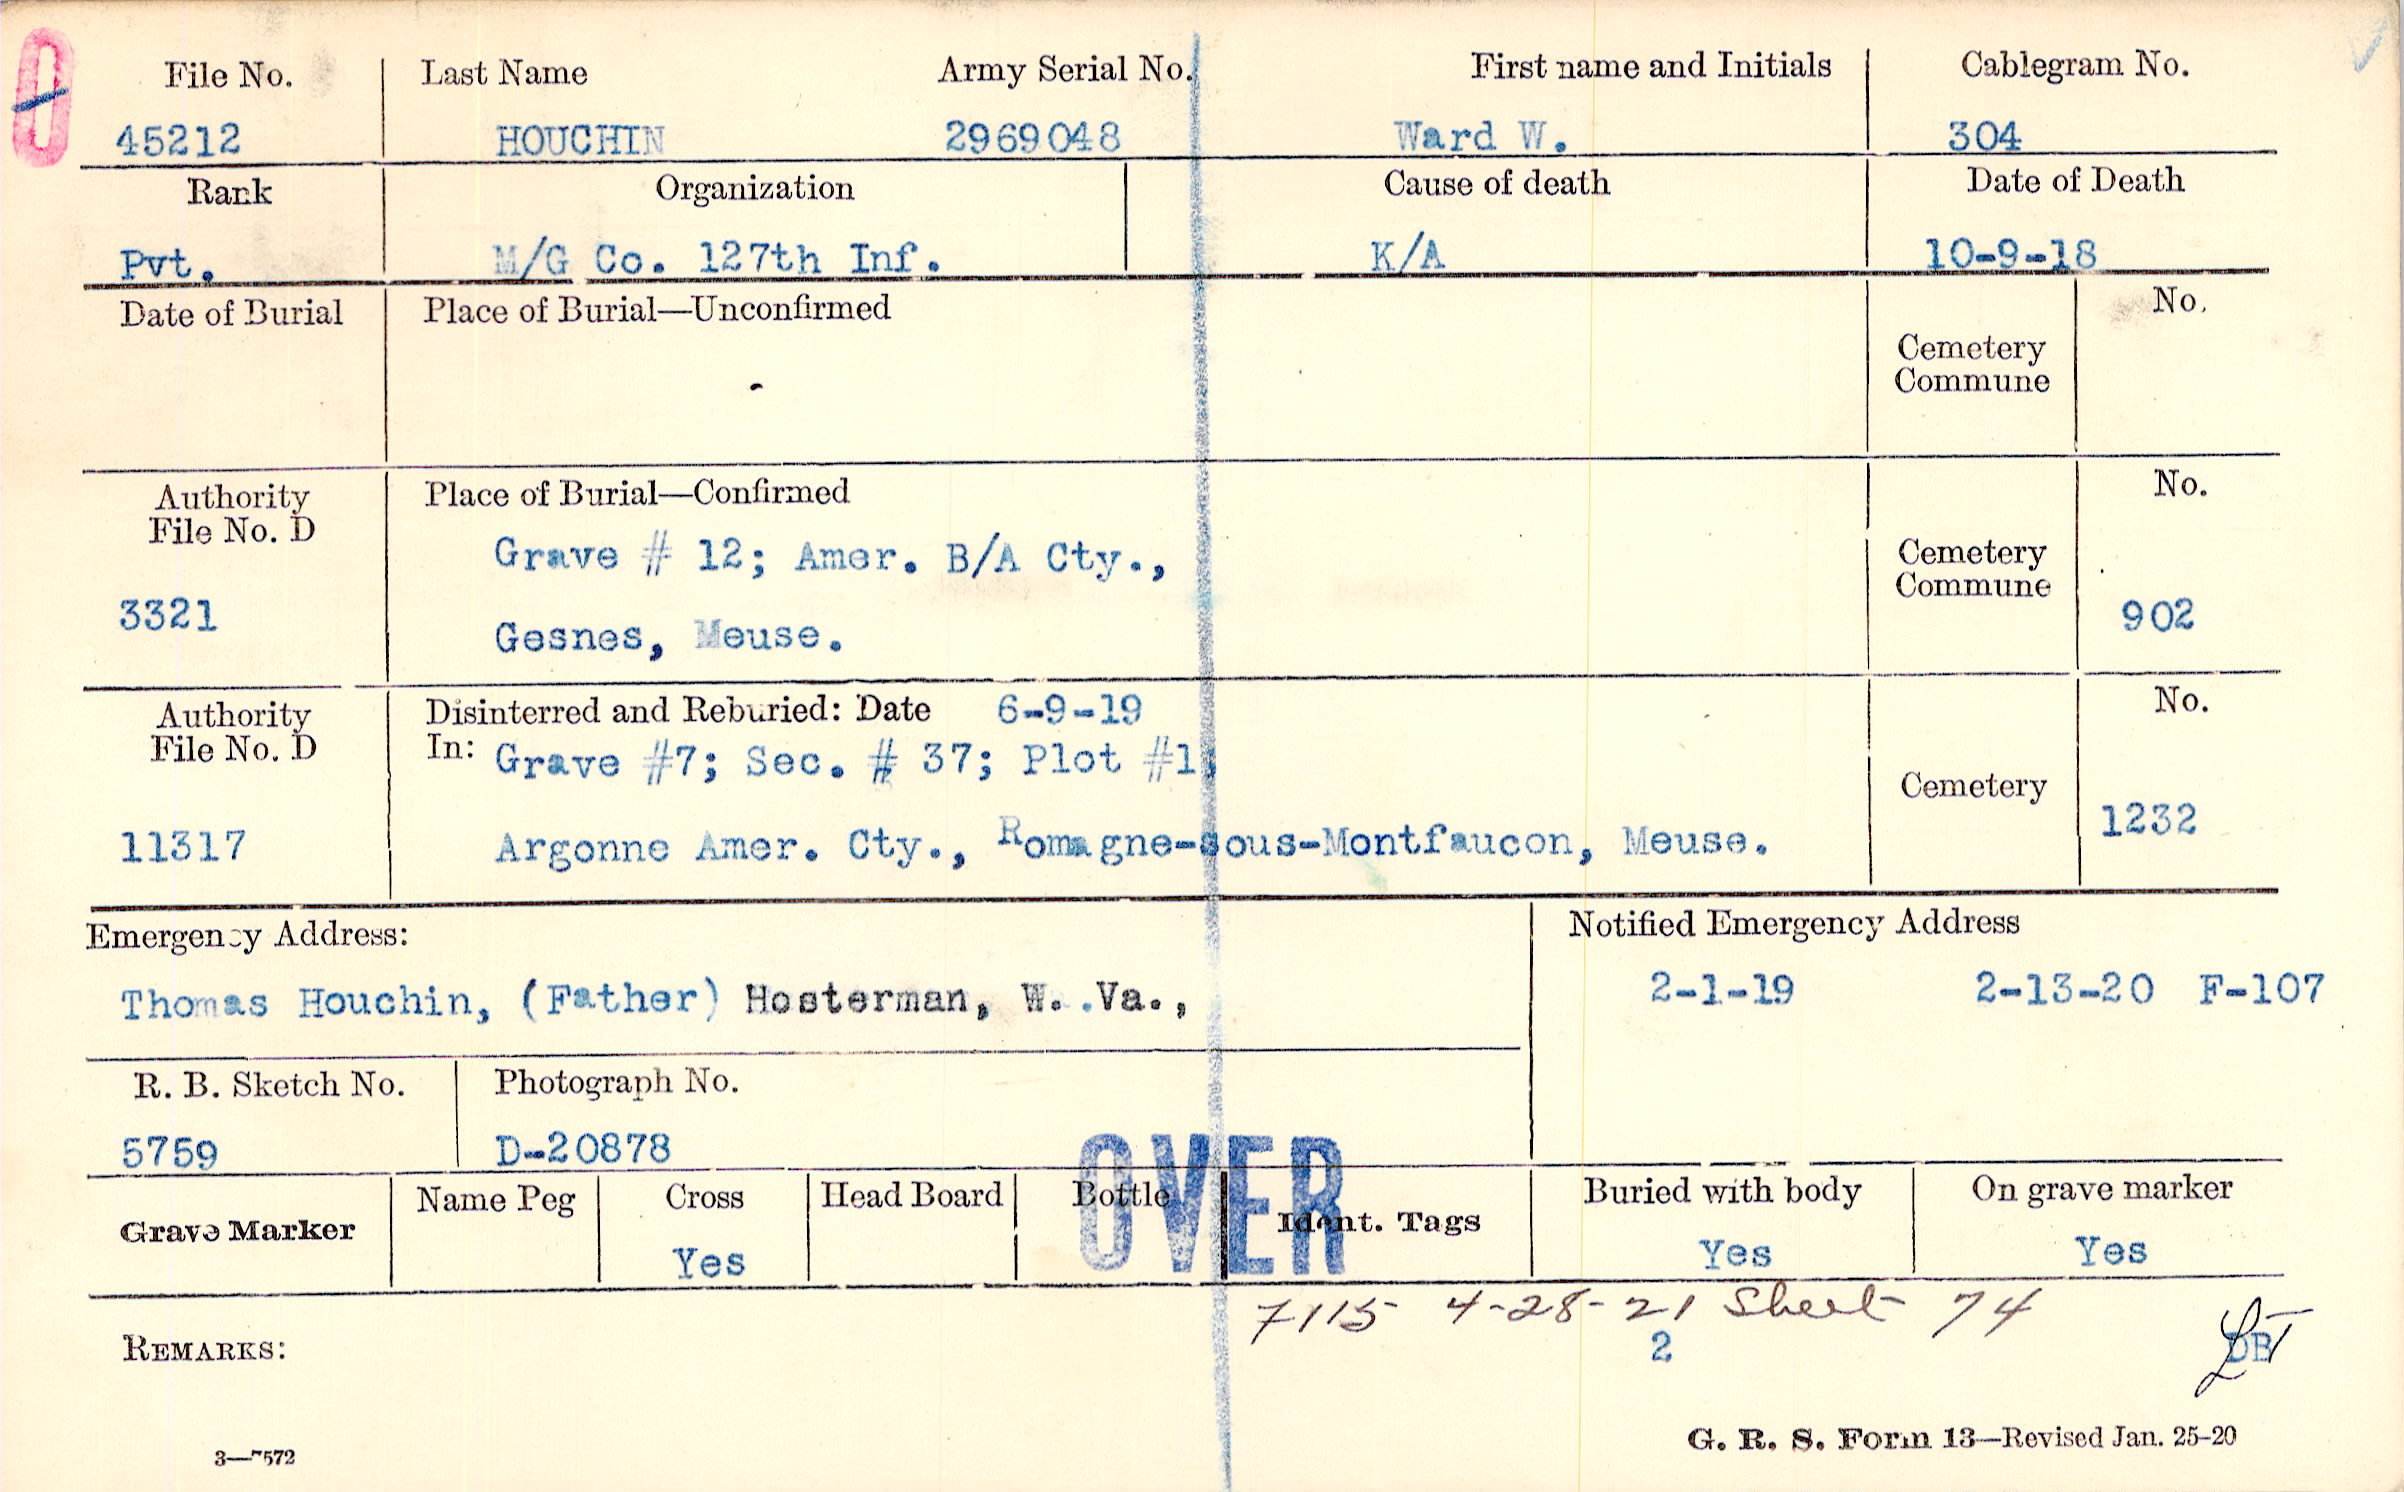 File No. Last Name Army Serial No. First name and Initials Cablegram No.
45212 HOUCHIN 2969048 Ward W. 304
Rank Organization Cause of death Date of Death
Pvt. M/G Co. 127th Inf. K/A 10-9-18
Date of Burial Place of Burial—Unconfirmed No.
Cemetery
Commune
Authority Place of Burial—Confirmed No.
File No. D
Grave # 12; Amer. B/A Cty., Cemetery
Commune
3321 Gesnes, Meuse. 902
Authority Disinterred and Reburied: Date 6-9-19 No.
File No. D In: Grave #7; Sec. # 37; Plot #1;
Cemetery
11317 Argonne Amer. Cty., Romagne-sous-Montfaucon, Meuse. 1232
Emergency Address: Notified Emergency Address
Thomas Houchin, (Father) Hosterman, W. Va., 2-1-19 2-13-20 F-107
R. B. Sketch No. Photograph No.
5759 D-20878
OVER
Grave Marker Name Peg Cross Head Board Bottle Ident. Tags Buried with body On grave marker
Yes Yes Yes
7115 4-28-21 Sheet 74
REMARKS: 2 DB
G. R. S. Form 13—Revised Jan. 25-20
3—7572